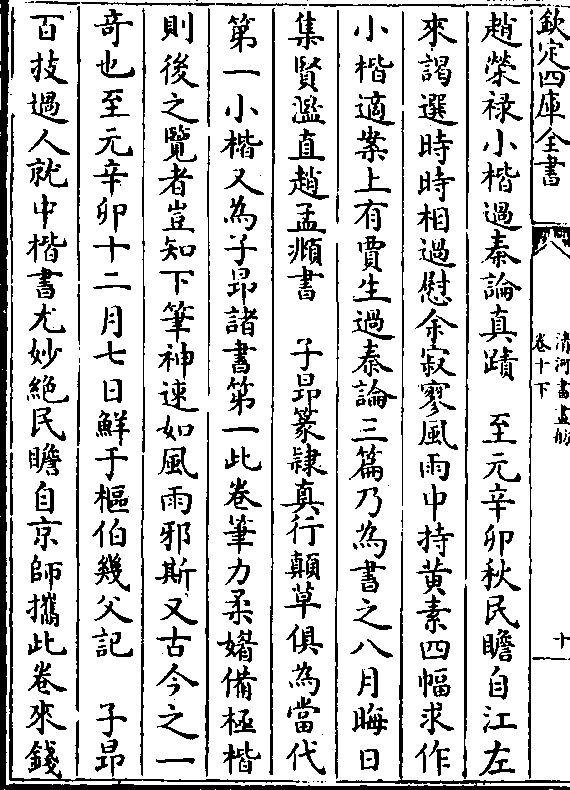 欽定四庫全書
清河書畫舫
卷十下
十
趙榮禄小楷過秦論真蹟　至元辛卯秋民瞻自江左
來謁選時時相過慰余寂寥風雨中持黄素四幅求作
小楷適案上有賈生過秦論三篇乃為書之八月晦日
集賢濫直趙孟頫書　子昂篆隸真行顛草俱為當代
第一小楷又為子昂諸書第一此卷筆力柔媚備極楷
則後之覽者豈知下筆神速如風雨邪斯又古今之一
竒也至元辛卯十二月七日鮮于樞伯幾父記　子昂
百技過人就中楷書尤妙絶民瞻自京師攜此卷來錢